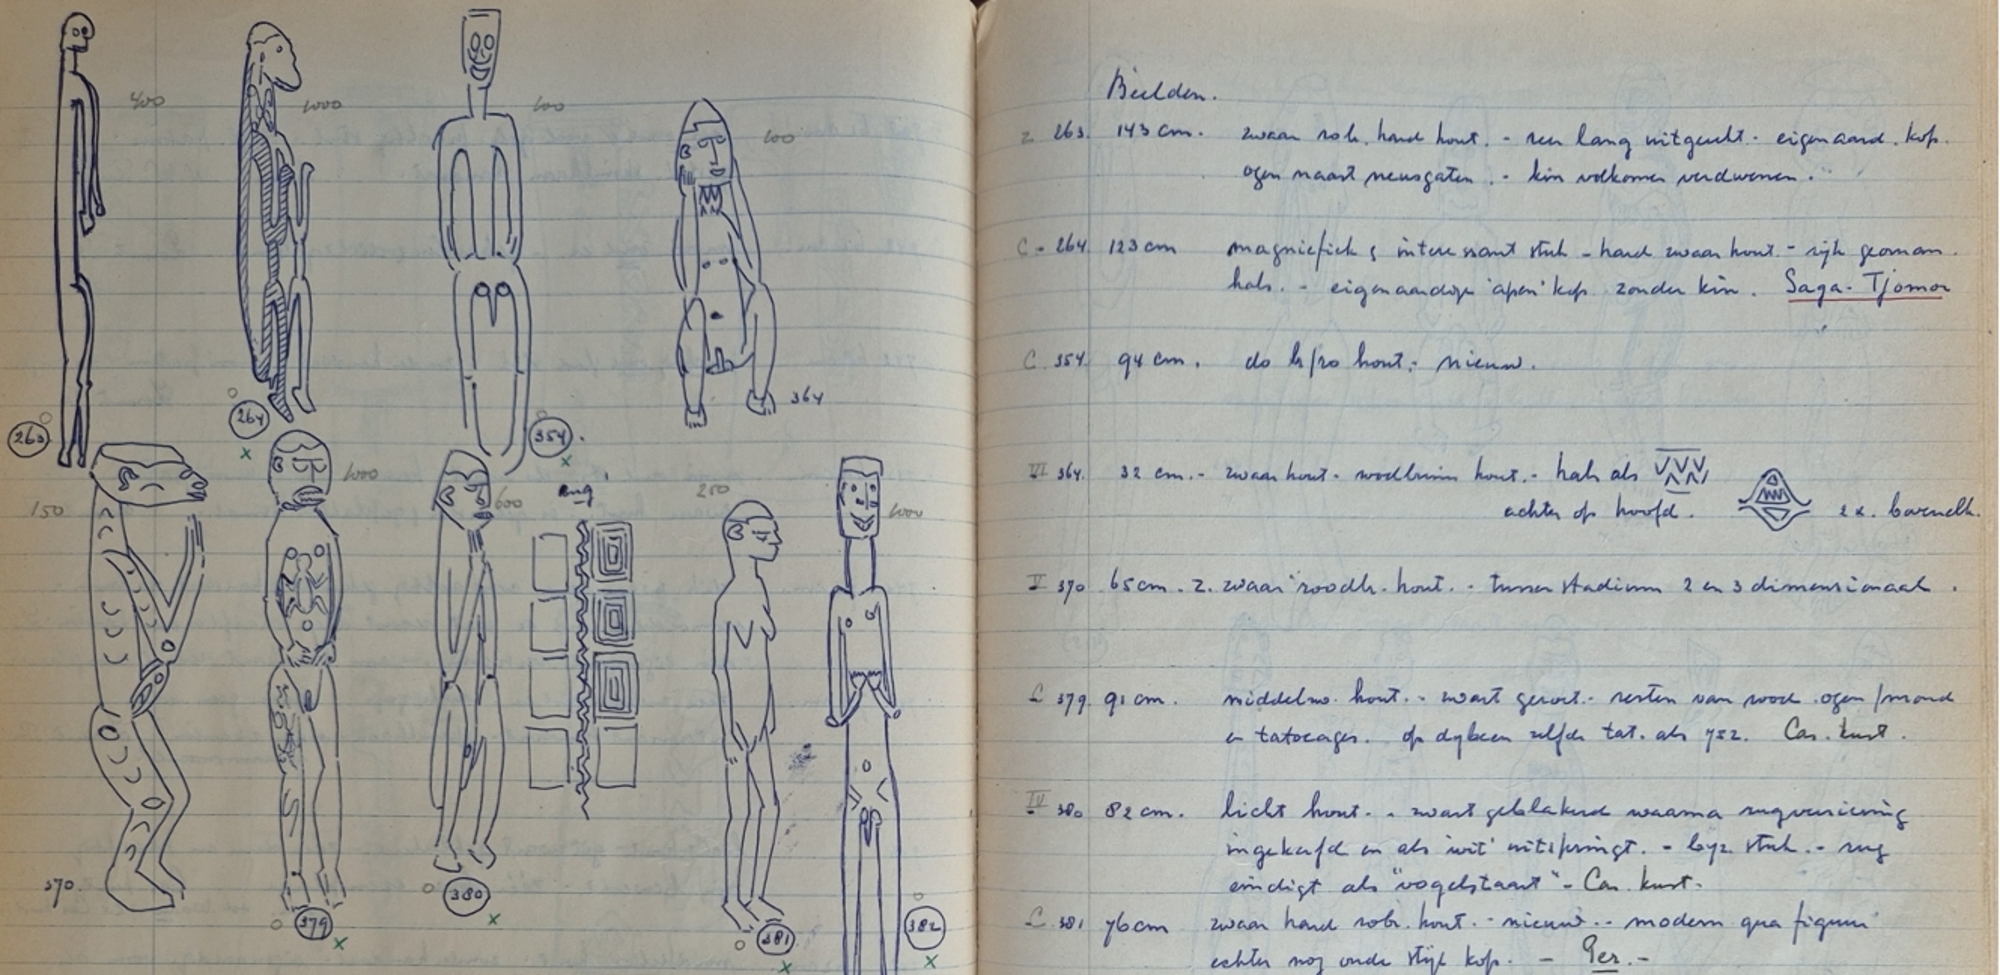 400
1000
600
600
263
264
354.
364
150
1000
600
rug
250
1000
370.
379
380
381
382
Beelden.
z 263. 143 cm. zwaar robr. hard hout. - zeer lang uitgerekt - eigenaard. kop.
ogen naast neusgaten. - kin volkomen verdwenen.
C - 264 123 cm magnifiek & interessant stuk - hard zwaar hout. - rijk geornam.
hals. - eigenaardige 'apen' kop zonder kin. Saga - Tjomor
C. 354. 94 cm. do hout. - nieuw.
VI 364. 32 cm. - zwaar hout - roodbruin hout. - hals als
achter op hoofd. 2 x.
V 370 65 cm. z. zwaar roodbr. hout. - tussen stadium 2 en 3 dimensionaal.
L 379. 91 cm. middelzw. hout. - zwart geroet. - resten van rood. ogen/mond
en tatoeages. op dybeen zelfde tat. als 752. Cas. kust.
IV 380 82 cm. licht hout. - zwart geblakerd waarna rugversiering
ingekerfd en als 'wit' uitspringt. - byz. stuk. - rug
eindigt als "vogelstaart" - Cas. kust.
L 381 76 cm zwaar hard robr. hout. - nieuw. - modern qua figuur
echter nog oude stijl kop. - Per. -